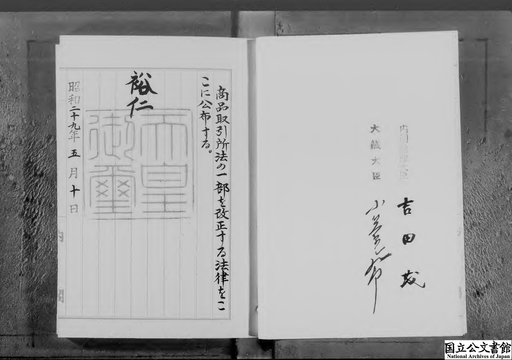 商品取引所法の一部を改正する法律をこ
こに公布する。
裕仁
天皇
御璽
昭和二十九年五月十日
内閣総理大臣
吉田茂
大蔵大臣
国立公文書館
National Archives of Japan